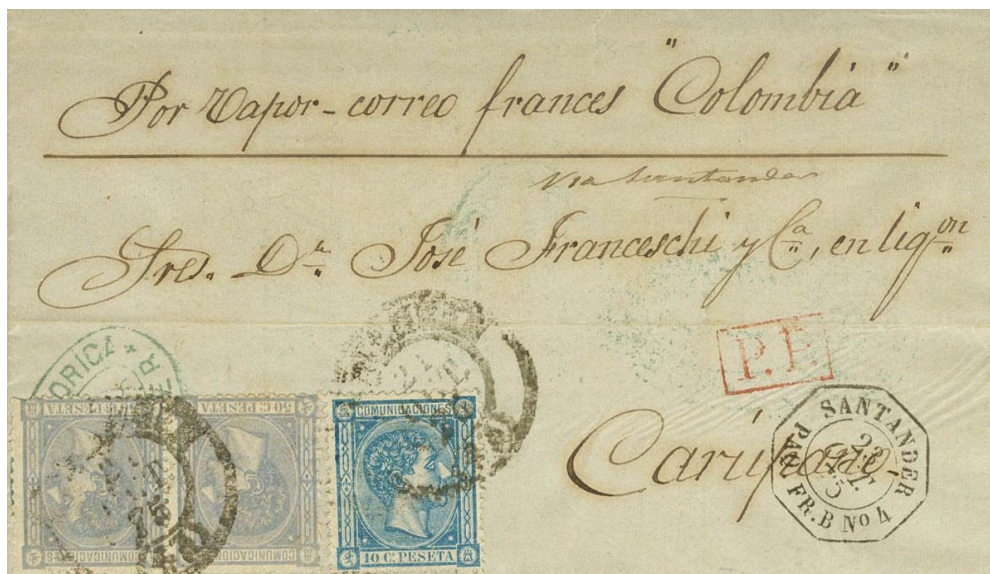 Por Vapor-correo frances "Colombia"
Via Santander
Sres. Dn. José Franceschi y Ca., en liqon
P.P.
Carúpano,
SANTANDER
22 OCT. 75
PAQ FR. B No 4
ORICA
50 C. PESETA
COMUNICACIONES
50 C. PESETA
COMUNICACIONES
COMUNICACIONES
10 C. PESETA